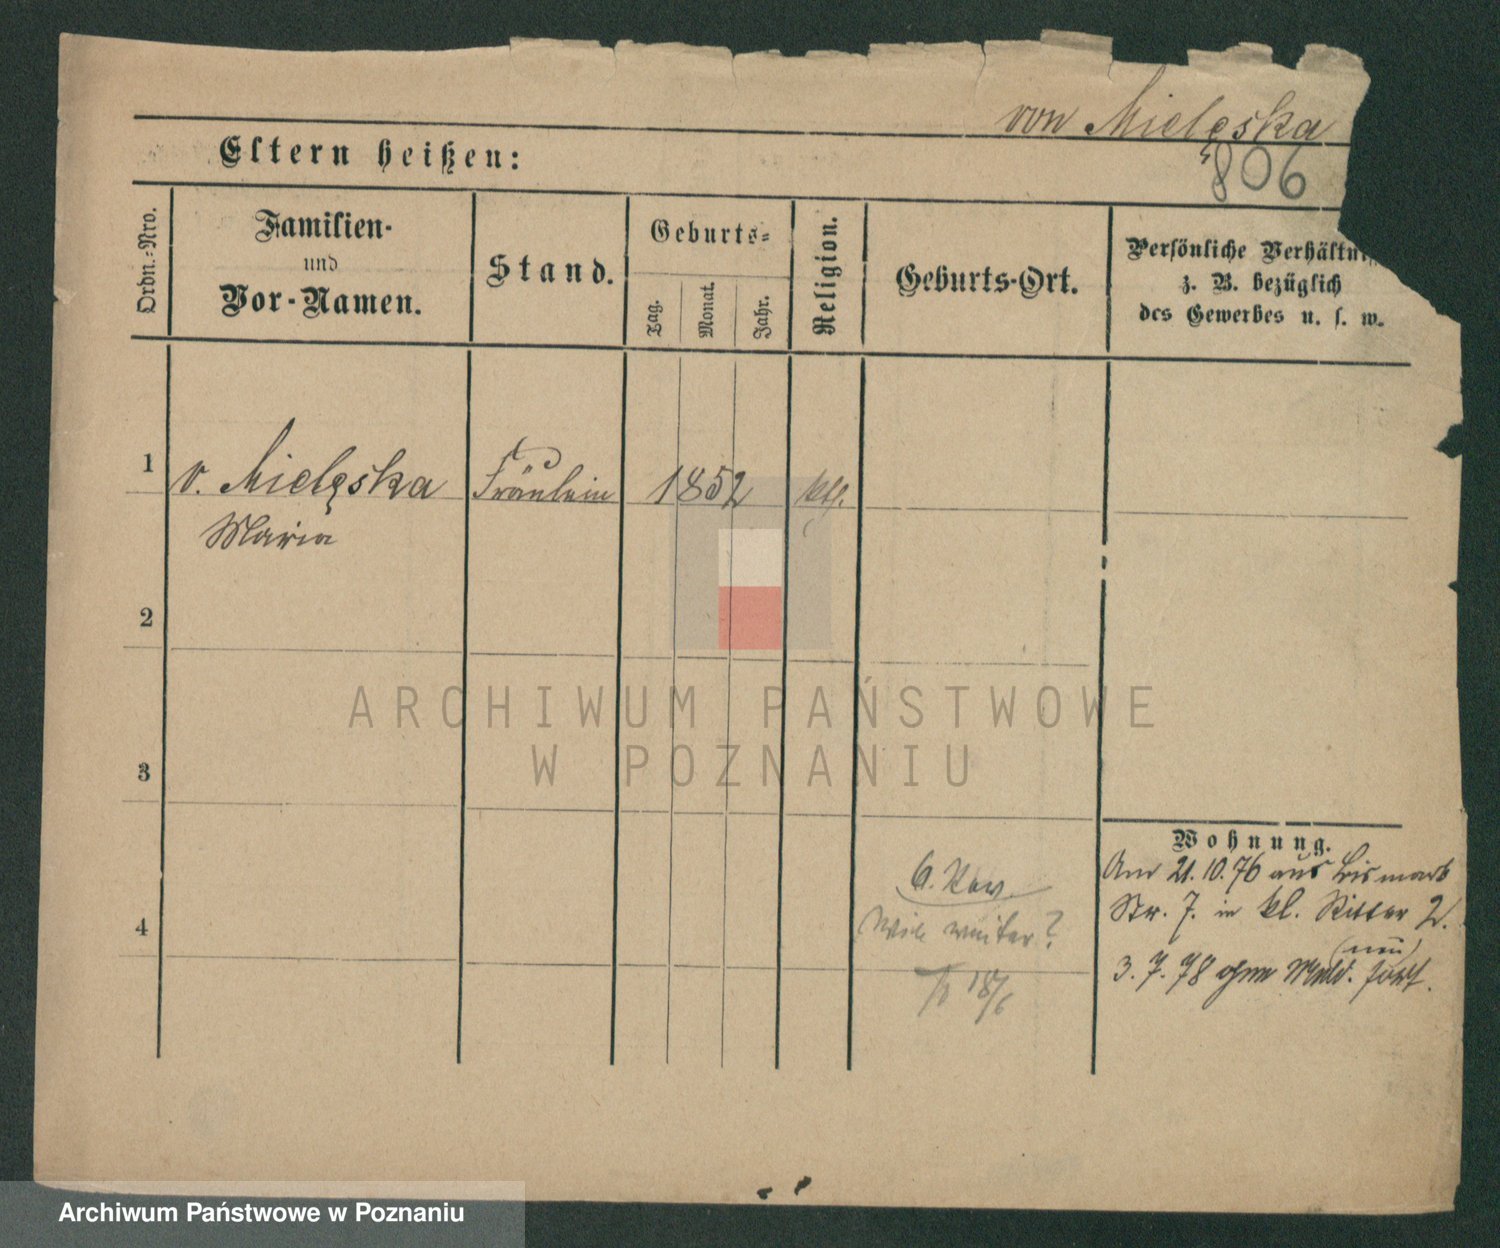 von Mielęska
806
Eltern heißen:
Ordn.-Nro.
Familien-
und
Vor-Namen.
Stand.
Geburts-
Tag.
Monat.
Jahr.
Religion.
Geburts-Ort.
Persönliche Verhältni
z. B. bezüglich
des Gewerbes u. s. w.
1
v. Mielęska
Fräulein
1852
kth.
Maria
2
3
4
Wohnung.
Am 21.10.76 aus Bismark
Str. 7. in kl. Ritter 2.
(neu)
3. 7. 78 ohne Meld. fort.
6.
wie weiter?
18/6
ARCHIWUM PAŃSTWOWE
W POZNANIU
Archiwum Państwowe w Poznaniu